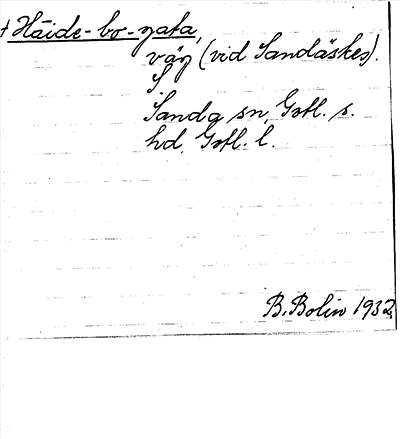 † Häide-bo-gata,
väg (vid Sandäskes).
S
Sanda sn, Gotl. s.
hd, Gotl. l.
B. Bolin 1932